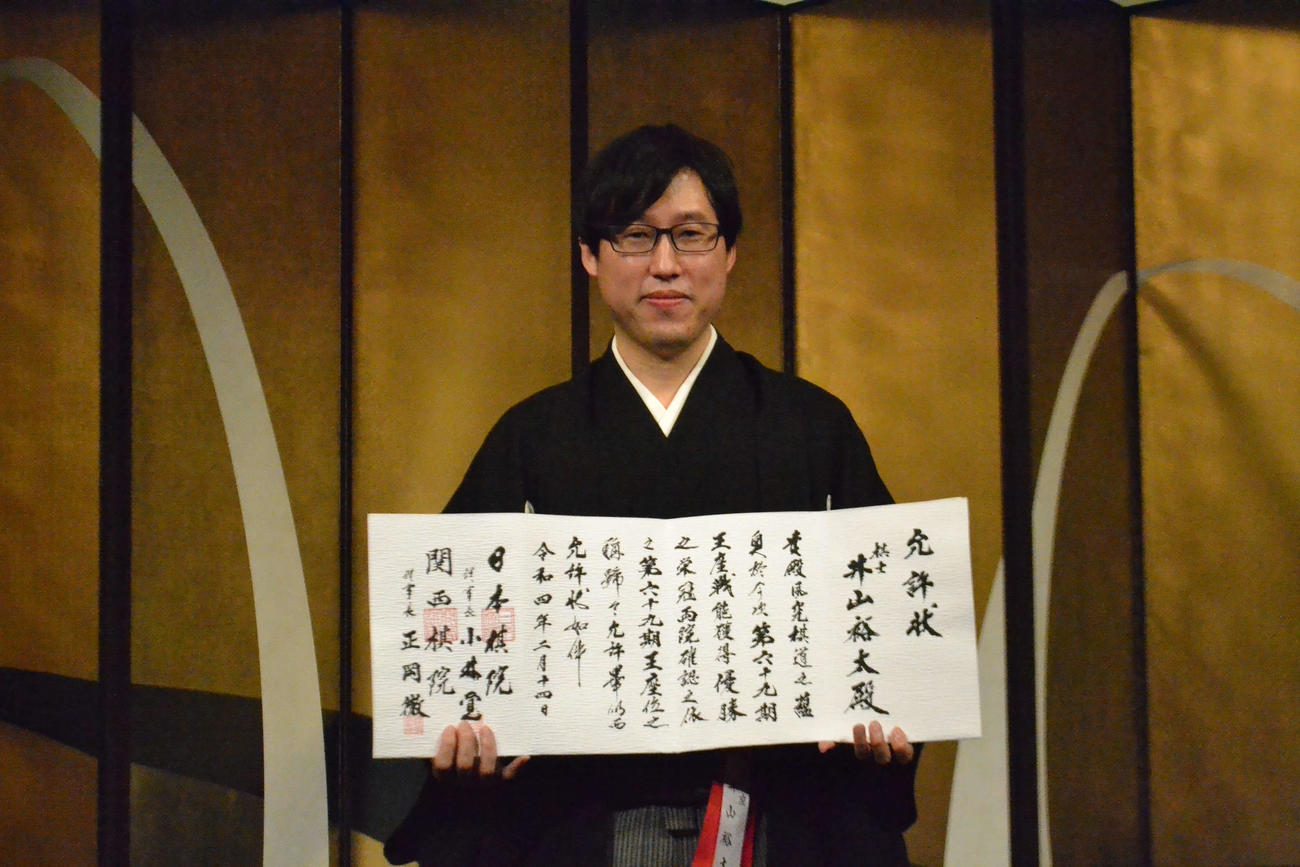 允許状
棋士
井山裕太殿
貴殿夙究棋道之蘊
奥於今次第六十九期
王座戦能獲得優勝
之栄冠両院確認之依
之第六十九期王座位之
稱號令允許畢仍而
允許状如件
令和四年二月十四日
日本棋院
理事長 小林覚
関西棋院
理事長 正岡徹
座
井山裕太